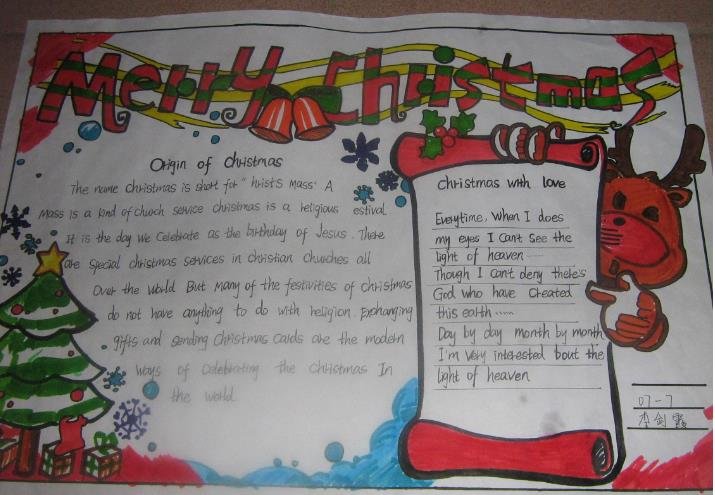 Merry Christmas
Origin of Christmas
The name Christmas is short for "hrist's Mass". A
Mass is a kind of chucch service christmas is a religious estival
It is the day we celebrate as the birthday of Jesus. There
are special christmas services in christian churches all
Over the world But many of the festivities of christmas
do not have anything to do with religion. Exchanging
gifts and sending Christmas cards are the modern
ways of celebrating the Christmas In
the world.
Christmas with love
Everytime, When I does
my eyes I can't see the
light of heaven ......
Though I can't deny there's
God who have created
this earth ......
Day by day month by month
I'm very interested 'bout the
light of heaven
07-7
李剑霞